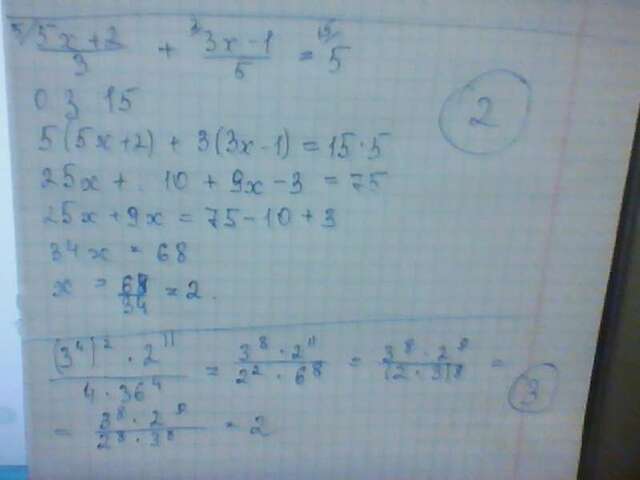 5/ (5x+2)/3 + 3/ (3x-1)/5 = 15/ 5
0 3 15
2
5(5x+2) + 3(3x-1) = 15·5
25x + . 10 + 9x - 3 = 75
25x + 9x = 75 - 10 + 3
34x = 68
x = 68/34 = 2.
((3⁴)² · 2¹¹)/(4 · 36⁴) = (3⁸ · 2¹¹)/(2² · 6⁸) = (3⁸ · 2⁹)/(2 · 3)⁸ =
3
= (3⁸ · 2⁹)/(2⁸ · 3⁸) = 2